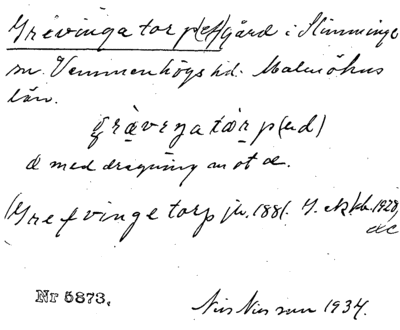 Grevinga torp(et) gård i Slimminge
sn. Vemmenhögs hd. Malmöhus
län.
grævɪŋa tɑrp(əd)
æ med dragning mot a.
(Grefvinge torp jb. 1881. G. ekk. 1928,
Nr 5873. Nils Nilsson 1934.